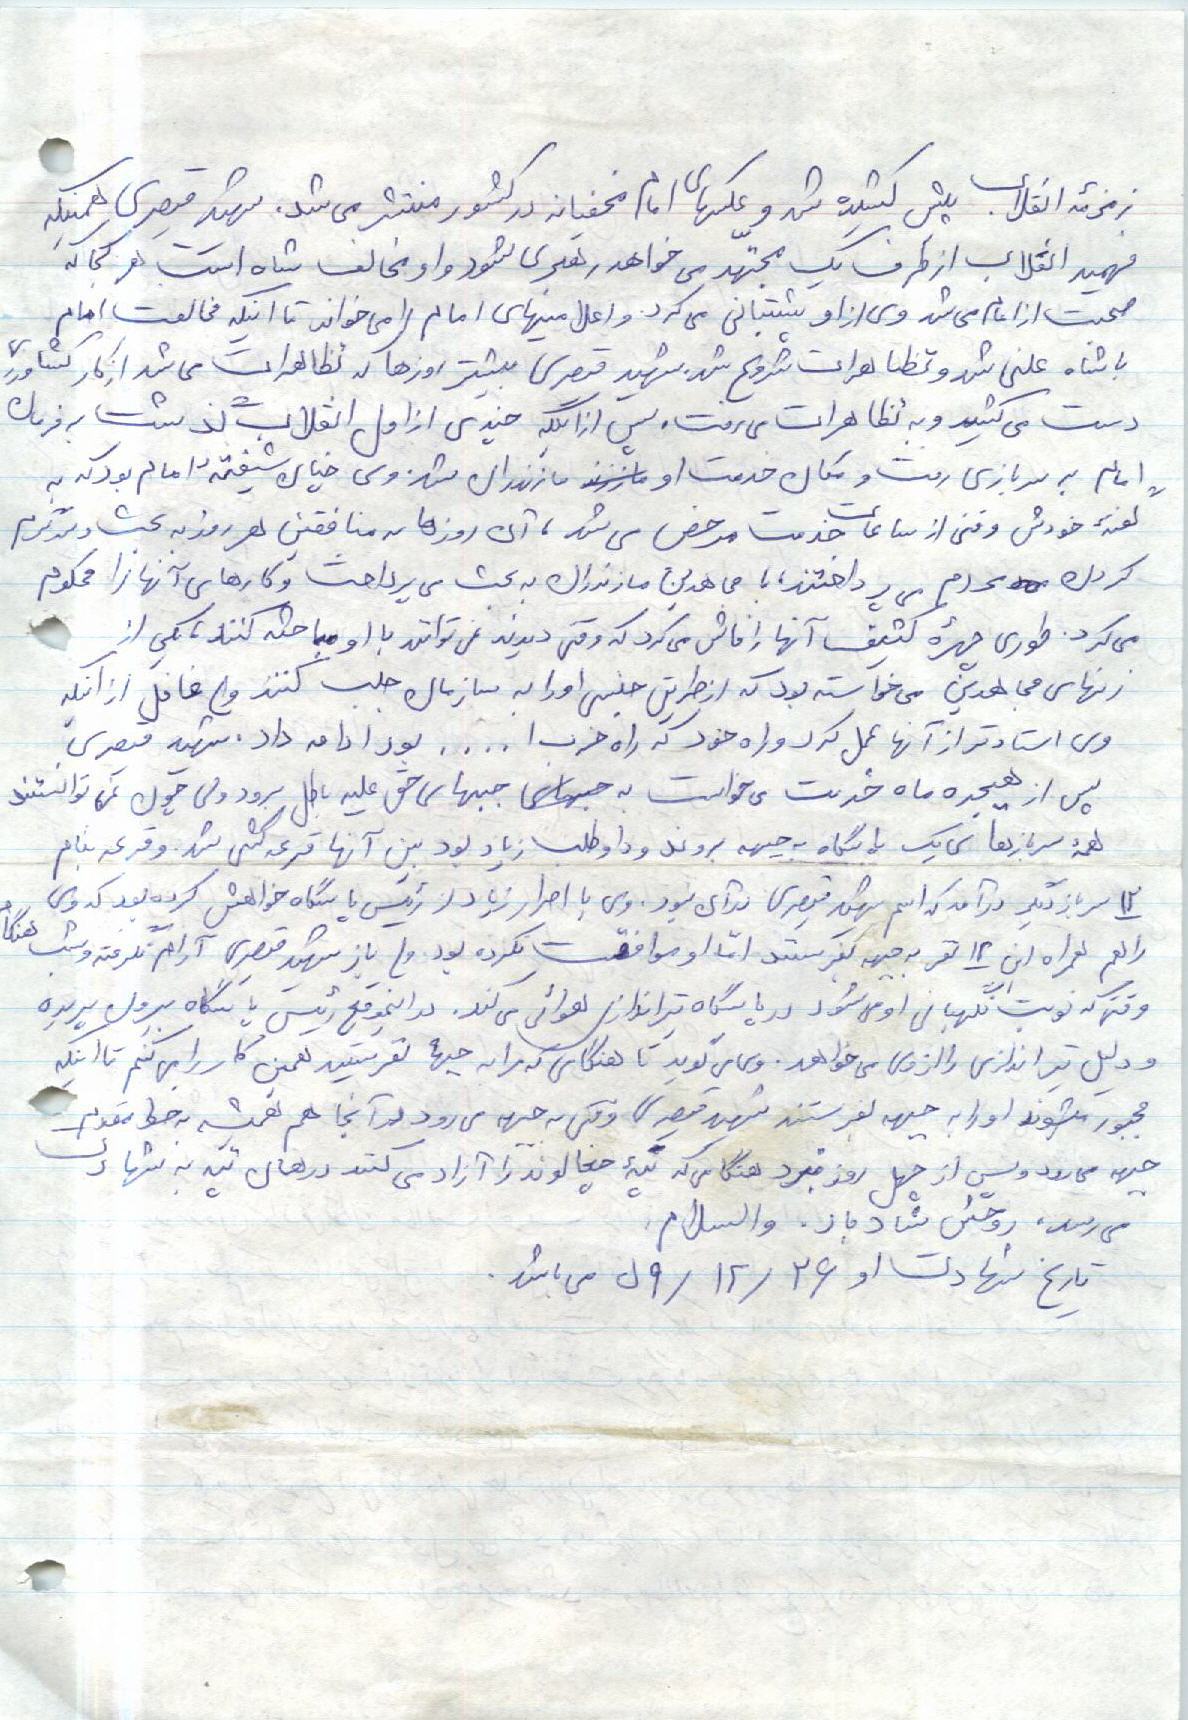 زمزمهٔ انقلاب پیش کشیده شد و عکسهای امام مخفیانه در کشور منتشر می‌شد. شهید قیصری همینکه
فهمید انقلاب از طرف یک مجتهد می خواهد رهبری شود و او مخالف شاه است هر کجا که
صحبت از امام می‌شد وی از او پشتبانی می‌کرد. و اعلامیه‌های امام را می‌خواند تا اینکه مخالفت امام
با شاه علنی شد و تظاهرات شروع شد. شهید قیصری بیشتر روزها که تظاهرات می شد از کار کشاورزی
دست می کشید و به تظاهرات می‌رفت. پس از اینکه چندی از اول انقلاب گذشت به فرمان
امام به سربازی رفت و مکان خدمت او مازندران شد. وی خیلی شیفتهٔ امام بود که به
گفتهٔ خودش وقتی از ساعات خدمت مرخص می شد، آن روزها که منافقین هر روز به بحث و
کردن مردم می پرداختند، با مجاهدین مازندران به بحث می پرداخت و کارهای آنها را محکوم
می‌کرد. طوری چهرهٔ کثیف آنها را فاش می‌کرد که وقتی دیدند نمی توانند با او مباحثه کنند، یکی از
زنهای مجاهدین می‌خواسته بود که از طریق جنسی او را به سازمان جلب کنند ولی غافل از اینکه
وی استادتر از آنها عمل کرد و راه خود که راه خدا .... بود ادامه داد. شهید قیصری
پس از هیجده ماه خدمت می خواست به جبهه‌های حق علیه باطل برود ولی چون نمی توانستند
همهٔ سربازهای یک پایگاه به جبهه بروند و داوطلب زیاد بود بین آنها قرعه کشی شد. و قرعه بنام
۱۲ سرباز دیگر درآمد که اسم شهید قیصری در آن نبود. وی با اصرار زیاد از رئیس پایگاه خواهش کرده بود که وی
را هم همراه این ۱۲ نفر به جبهه بفرستند اما او موافقت نکرده بود. ولی باز شهید قیصری آرام نگرفته و شب هنگام
وقتی که نوبت نگهبانی او می‌شود در پایگاه تیراندازی هوائی می کند. در اینموقع رئیس پایگاه بیرون پریده
و دلیل تیراندازی را از وی می خواهد. وی می گوید تا هنگامی که مرا به جبهه نفرستید همین کار را می‌کنم تا اینکه
مجبور میشوند او را به جبهه بفرستند شهید قیصری وقتی به جبهه می رود در آنجا هم همیشه به خط مقدم
جبهه می رود و پس از چهل روز نبرد هنگامی که تپهٔ چغالوند را آزاد می کنند در همان تپه به شهادت
می‌رسد، روحش شاد باد. والسلام.
تاریخ شهادت او ۲۶/ ۱۲/ ۵۹ می باشد.